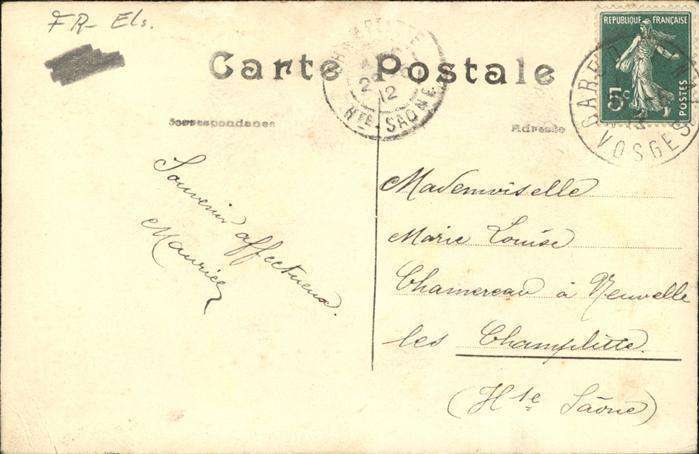 FR- Els.
Carte Postale
Correspondance
Adresse
RÉPUBLIQUE FRANÇAISE
5c
POSTES
12
HTE-SAÔNE
GARE
VOSGES
Souvenir affectueux.
Maurice
Mademoiselle
Marie Louise
Chamereau à Neuvelle
les Champlitte
(Hte Saône)